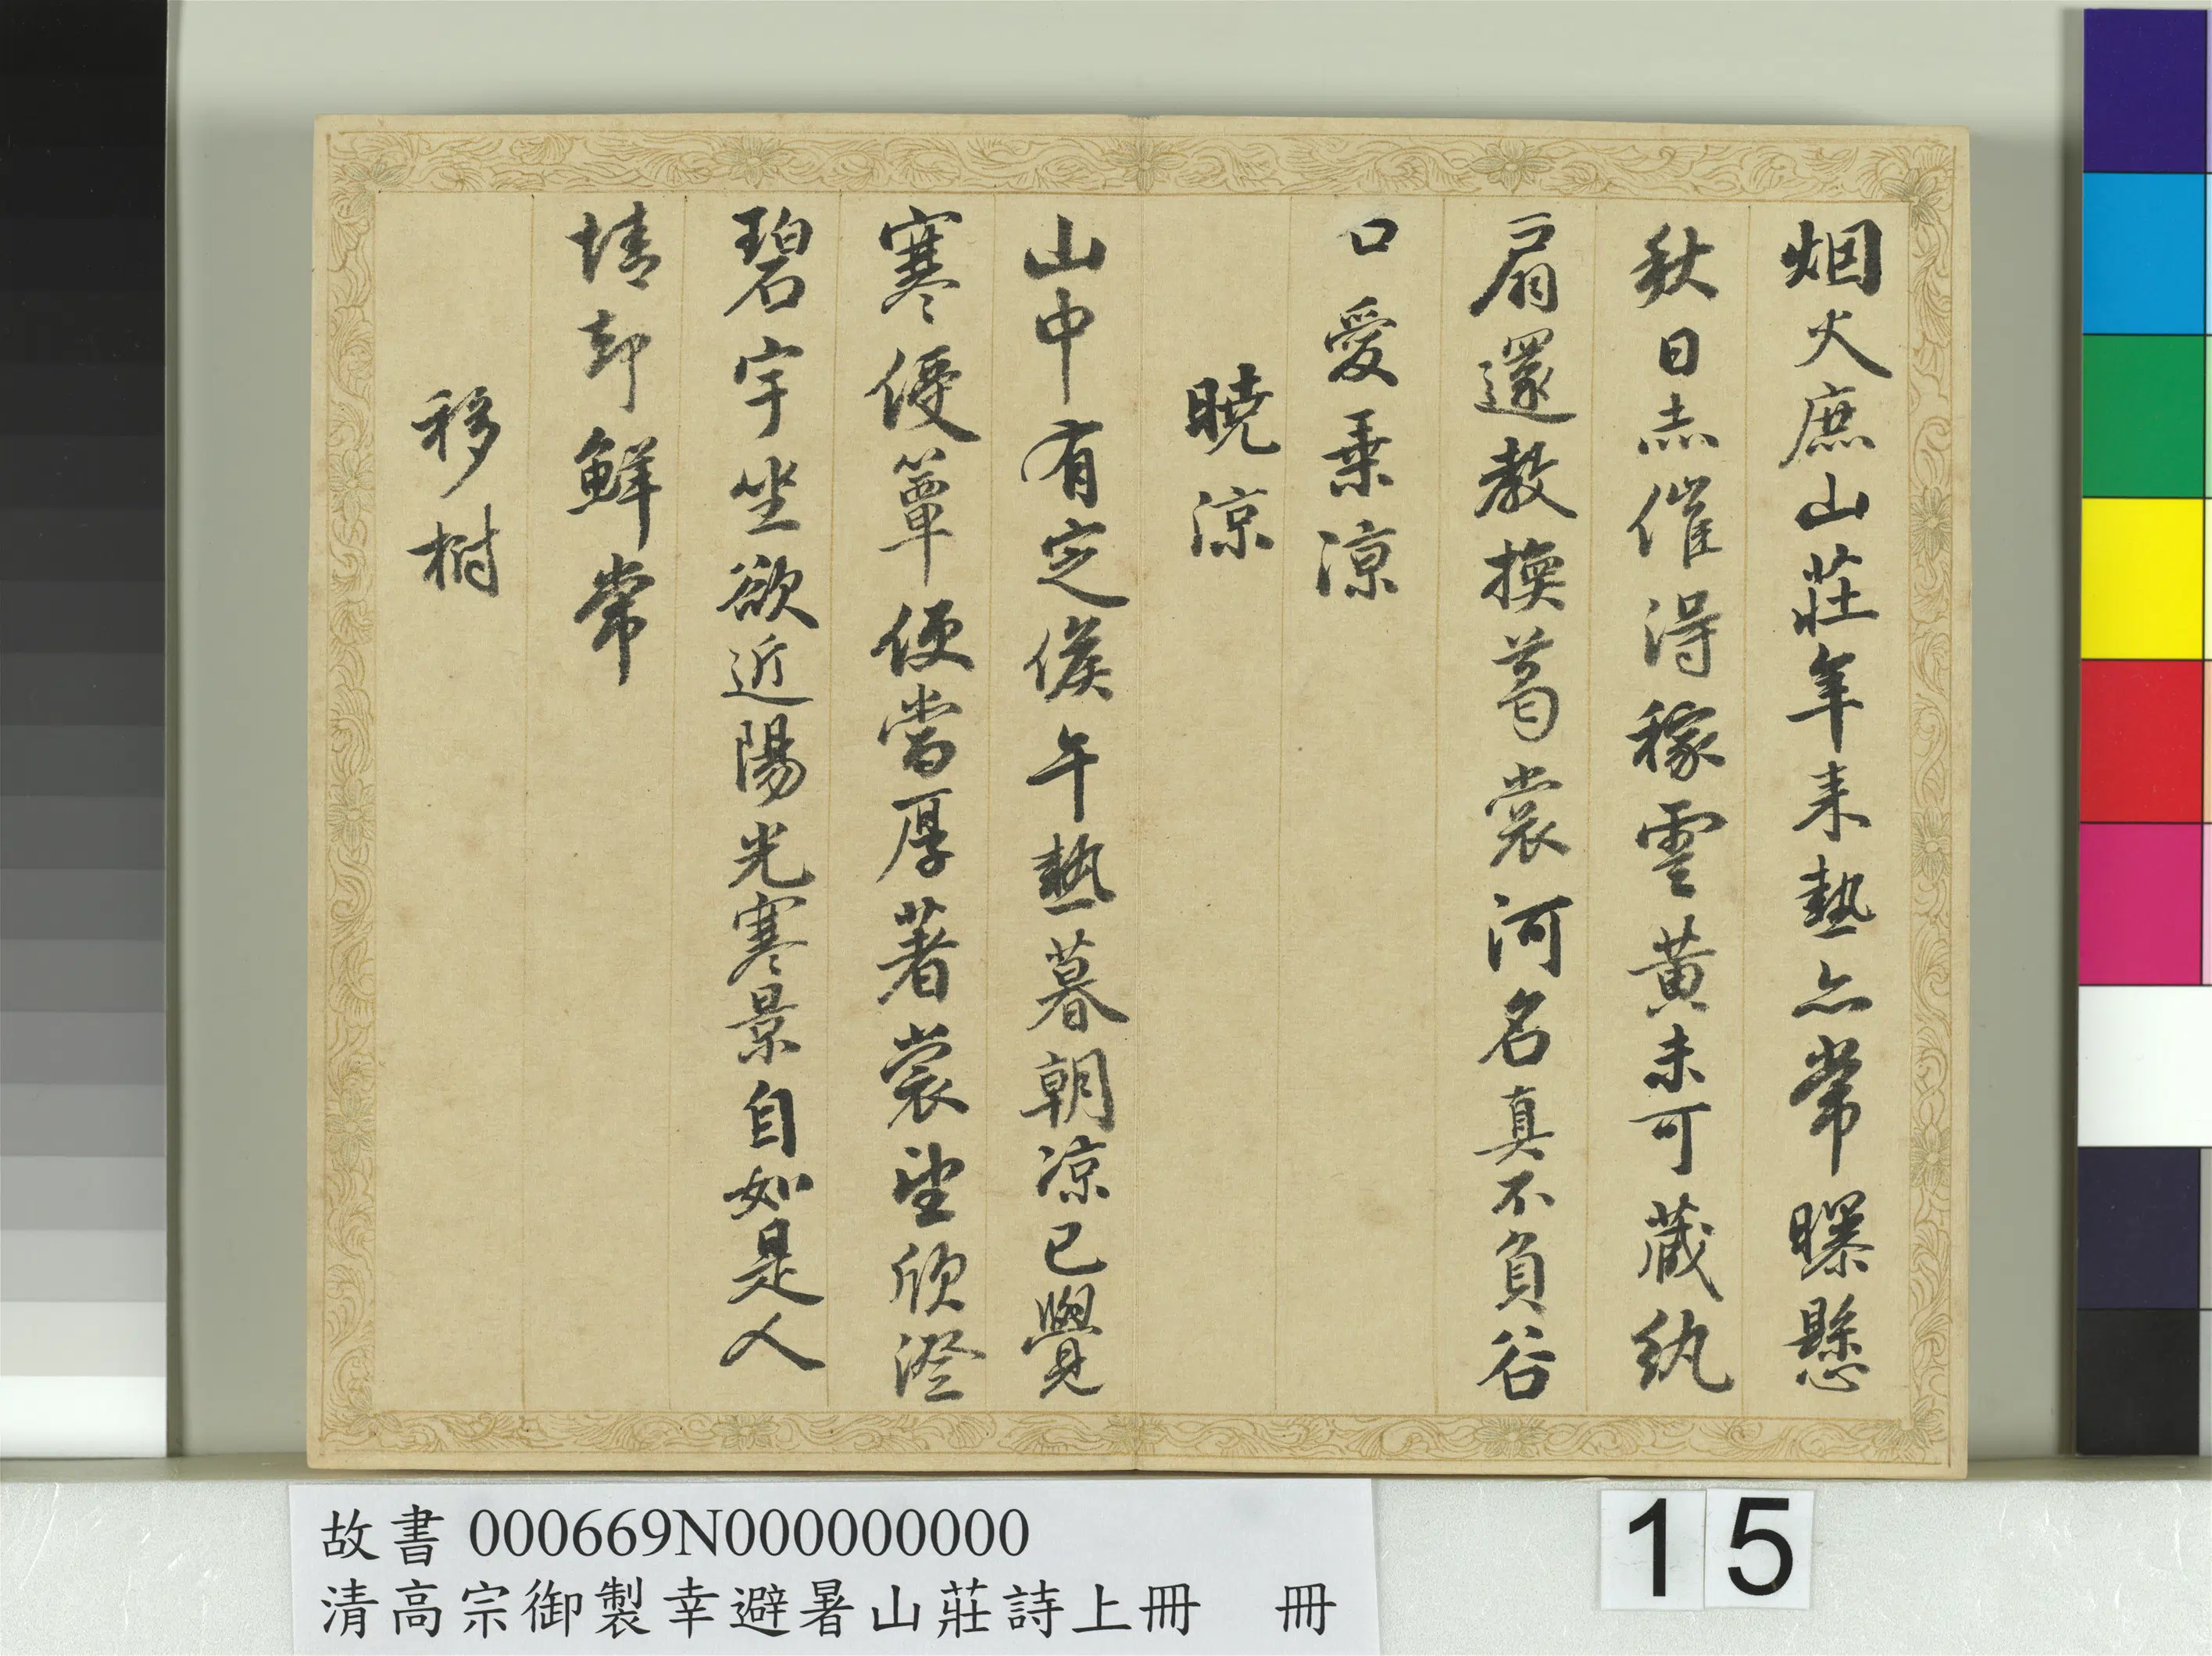 烟火庶山莊年来熱亦常曝懸
秋日赤催得稼雲黄未可蔵紈
扇還教換葛裳河名真不負谷
口愛乗涼
曉涼
山中有定候午熱暮朝涼已覺
寒侵簟便當厚著裳望欣澄
碧宇坐欲近陽光寒景自如是人
情却鮮常
移樹
故書 000669N000000000
清高宗御製幸避暑山莊詩上冊 冊
15